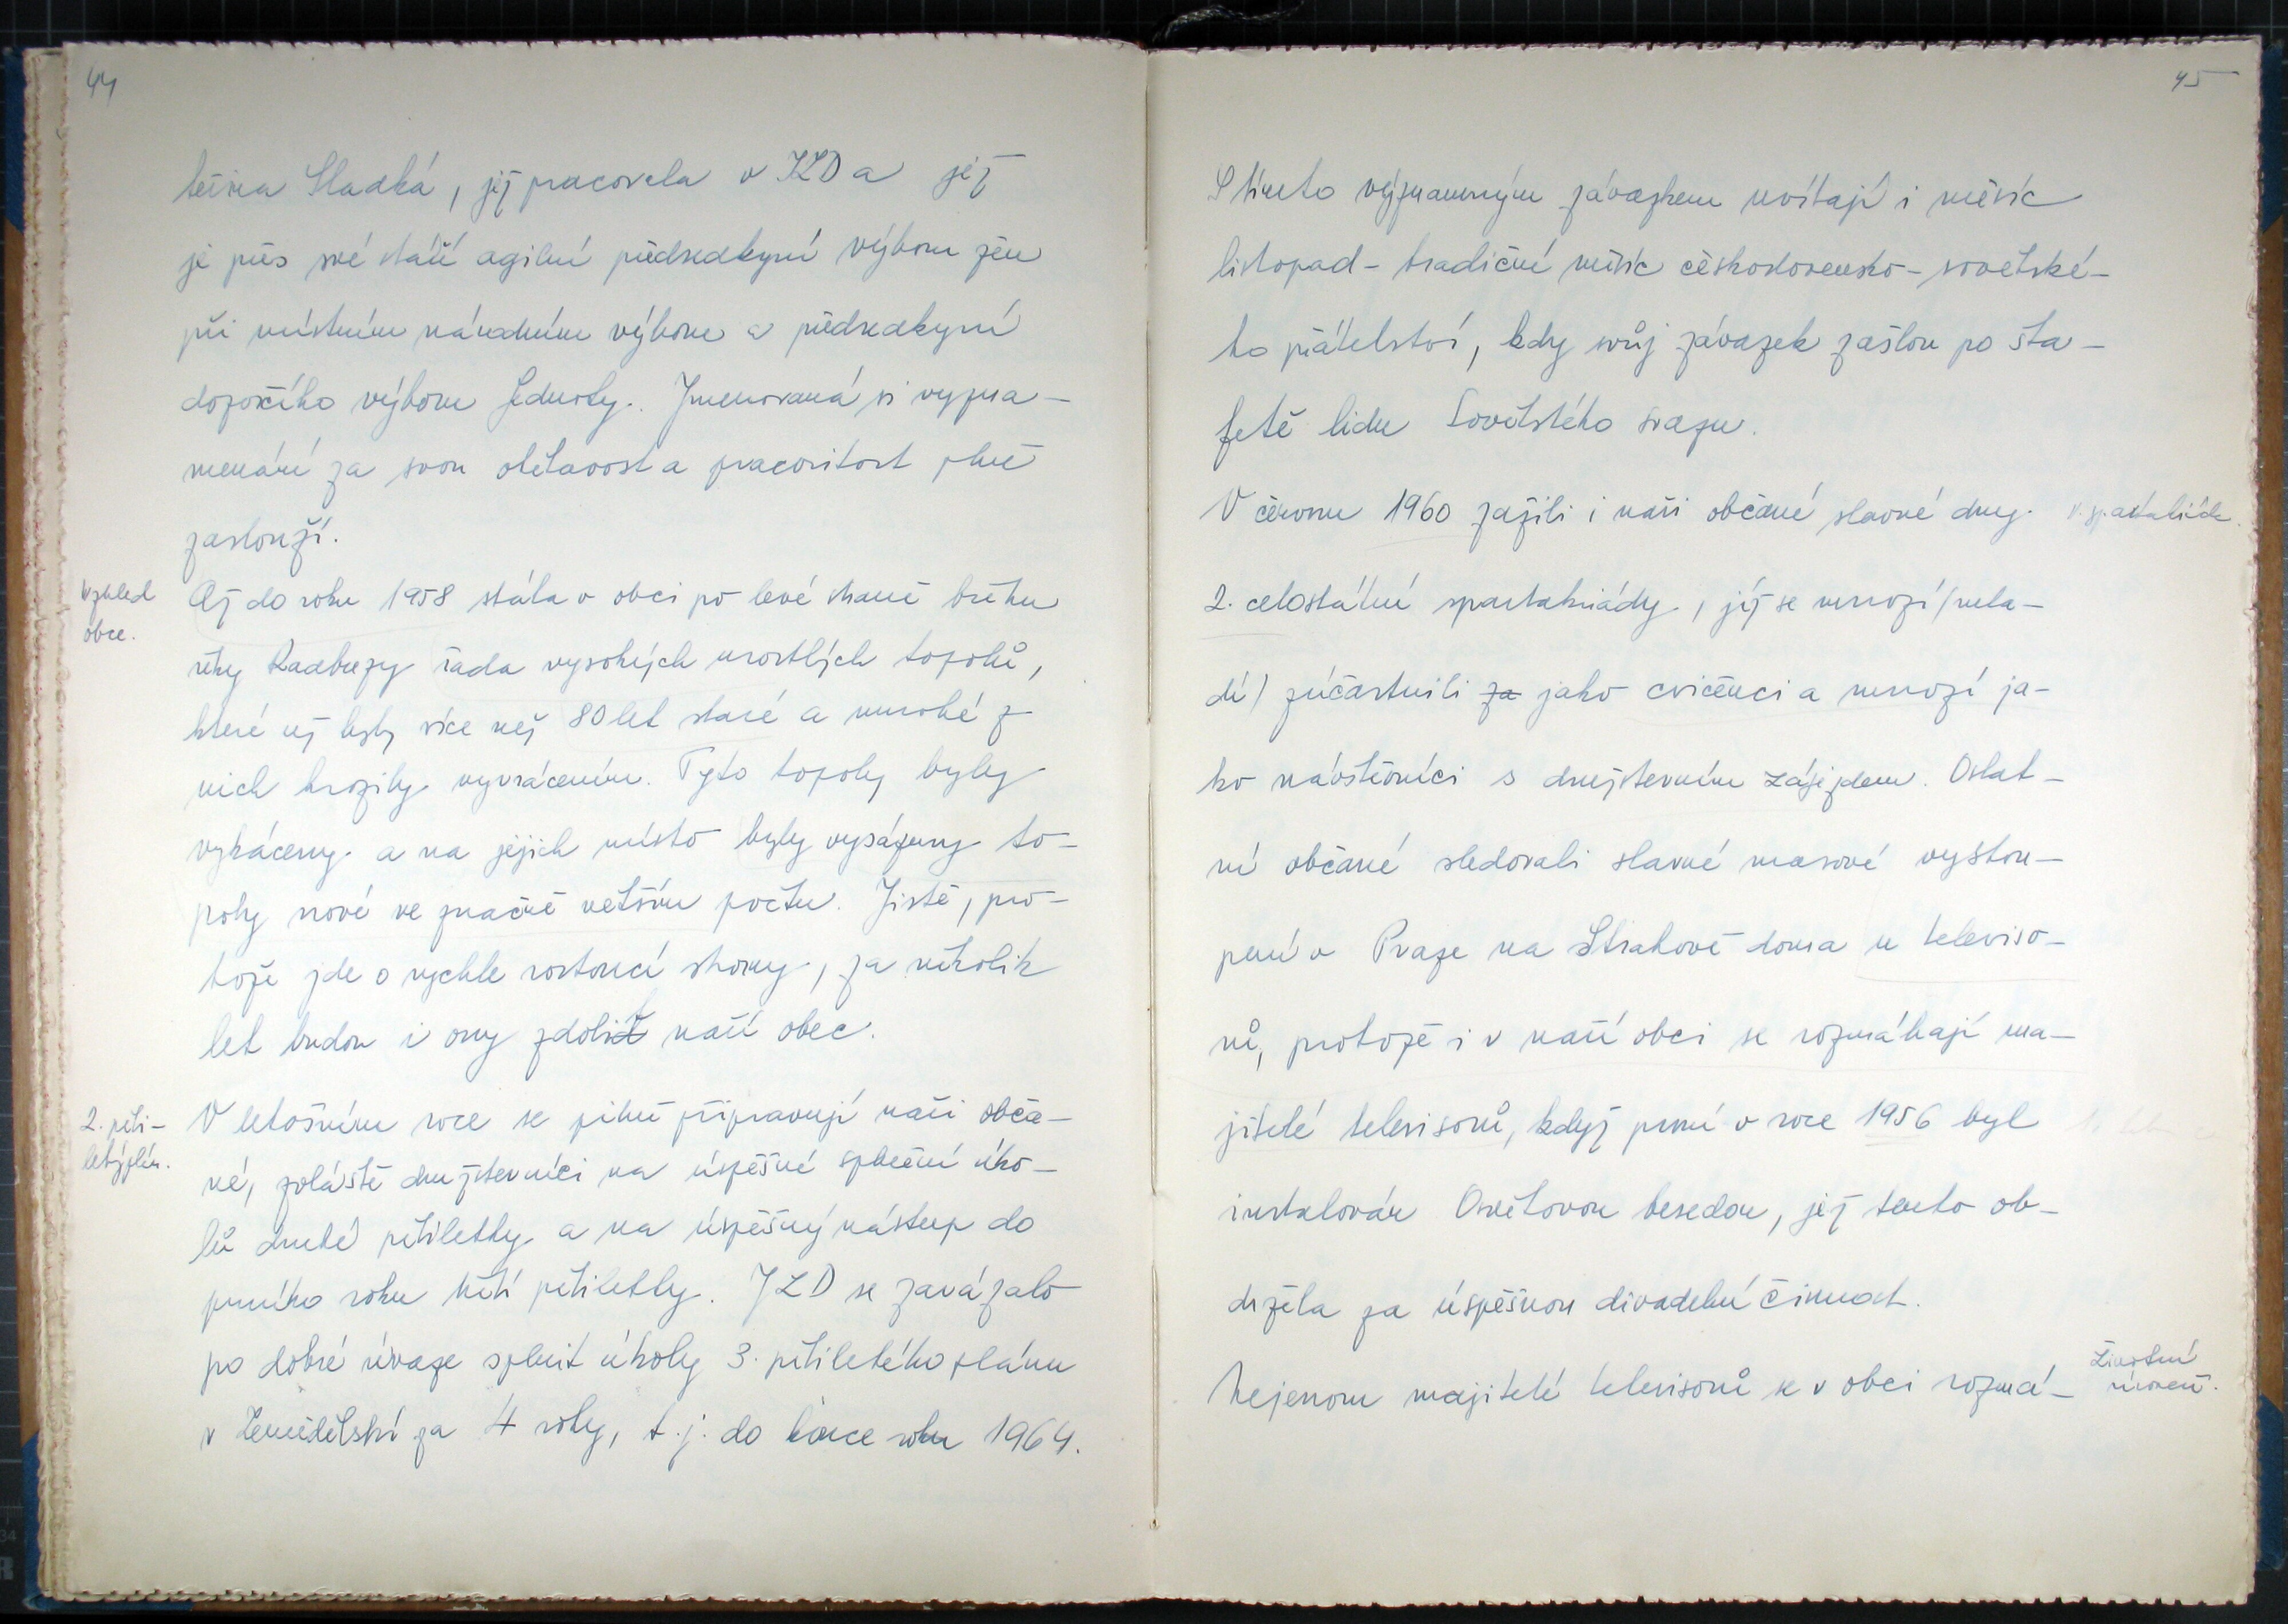 44
teřina Sladká, jež pracovala v JZD a jež
je přes své stáří agilní předsedkyní výboru žen
při místním národním výboru a předsedkyní
dozorčího výboru Jednoty. Jmenovaná si vyzna-
menání za svou obětavost a pracovitost plně
zaslouží.
Vzhled
obce.
Až do roku 1958 stála v obci po levé straně břehu
řeky Radbuzy řada vysokých urostlých topolů,
které už byly více než 80 let staré a mnohé z
nich hrozily vyvrácením. Tyto topoly byly
vykáceny a na jejich místo byly vysázeny to-
poly nové ve značně větším počtu. Jistě, pro-
tože jde o rychle rostoucí stromy, za několik
let budou i ony zdobit naši obec.
2. pěti-
letý plán.
V letošním roce se pilně připravují naši obča-
né, zvláště družstevníci na úspěšné splnění úko-
lů druhé pětiletky a na úspěšný nástup do
prvního roku třetí pětiletky. JZD se zavázalo
po dobré úvaze splnit úkoly 3. pětiletého plánu
v zemědělství za 4 roky, t.j. do konce roku 1964.
45
S tímto významným závazkem uvítají i měsíc
listopad - tradiční měsíc československo-sovětské-
ho přátelství, kdy svůj závazek zašlou po šta-
fetě lidu Sovětského svazu.
V červnu 1960 zažili i naši občané slavné dny
spartakiáda
2. celostátní spartakiády, jíž se mnozí (mla-
dí) zúčastnili za jako cvičenci a mnozí ja-
ko návštěvníci s družstevním zájezdem. Ostat-
ní občané sledovali slavné masové vystou-
pení v Praze na Strahově doma u televiso-
rů, protože i v naší obci se rozmáhají ma-
jitelé televisorů, když první v roce 1956 byl
instalován Osvětovou besedou, jež tento ob-
držela za úspěšnou divadelní činnost.
Nejenom majitelé televisorů se v obci rozmá-
Životní
úroveň.